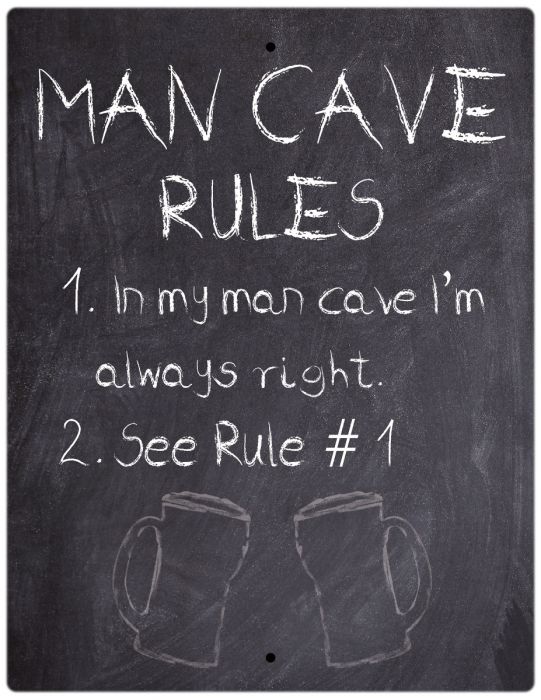 MAN CAVE
RULES
1. In my man cave I'm
always right.
2. See Rule # 1